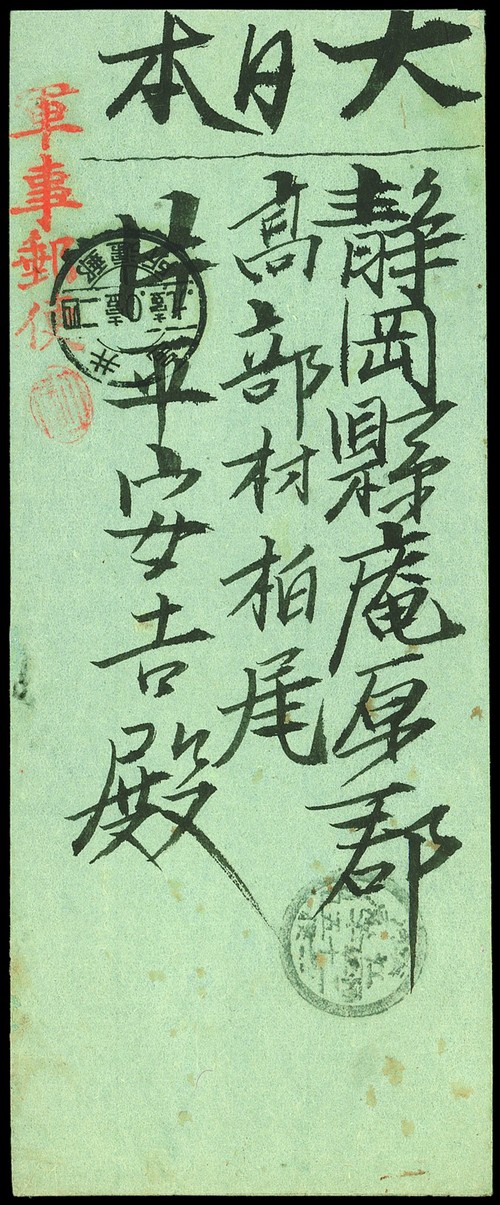 大日本
静岡縣庵原郡
高部村柏尾
片平安吉殿
軍事郵便